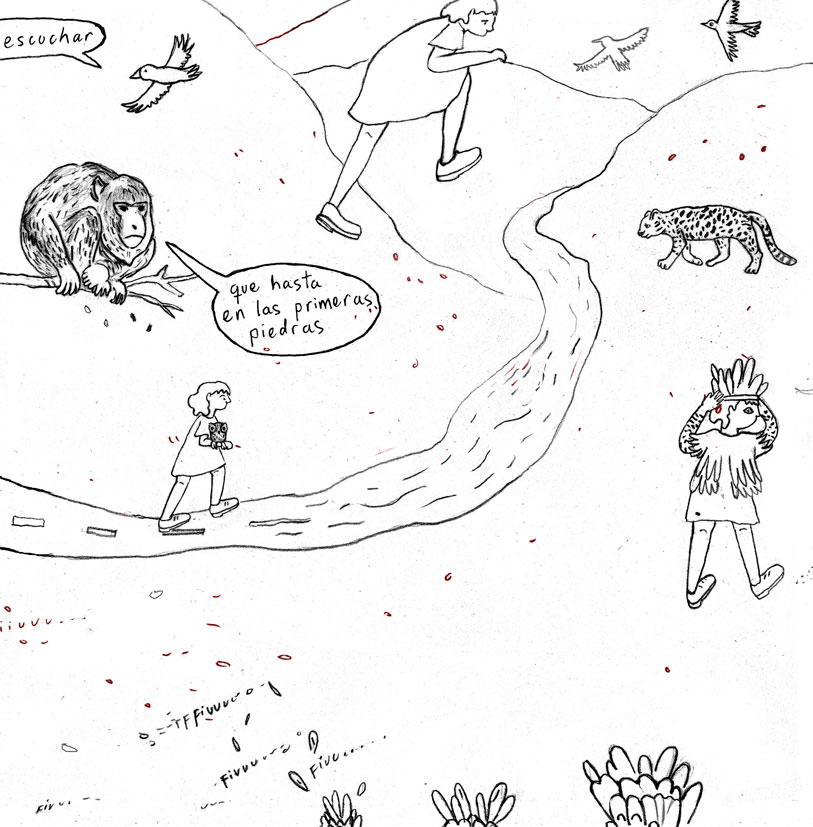 escuchar
que hasta
en las primeras
piedras
iiuuu....
FFFiuuuu
Fiuuuu
Fiuu....
Fiuu.